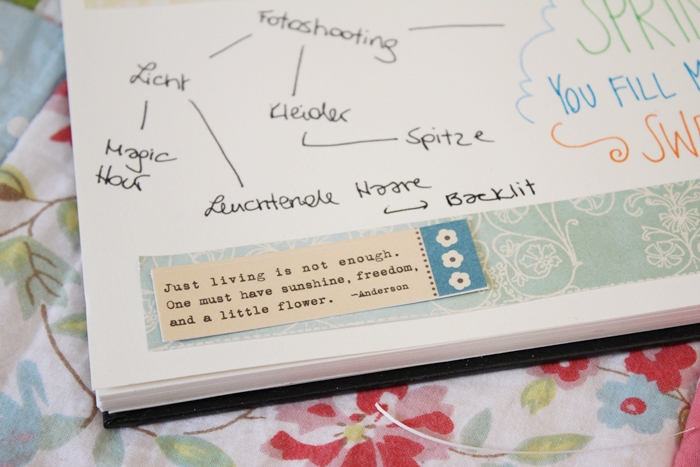 Fotoshooting
Licht
Kleider
Spitze
Magic
Hour
Leuchtende Haare
Backlit
YOU FILL
Just living is not enough.
One must have sunshine, freedom,
and a little flower. —Anderson